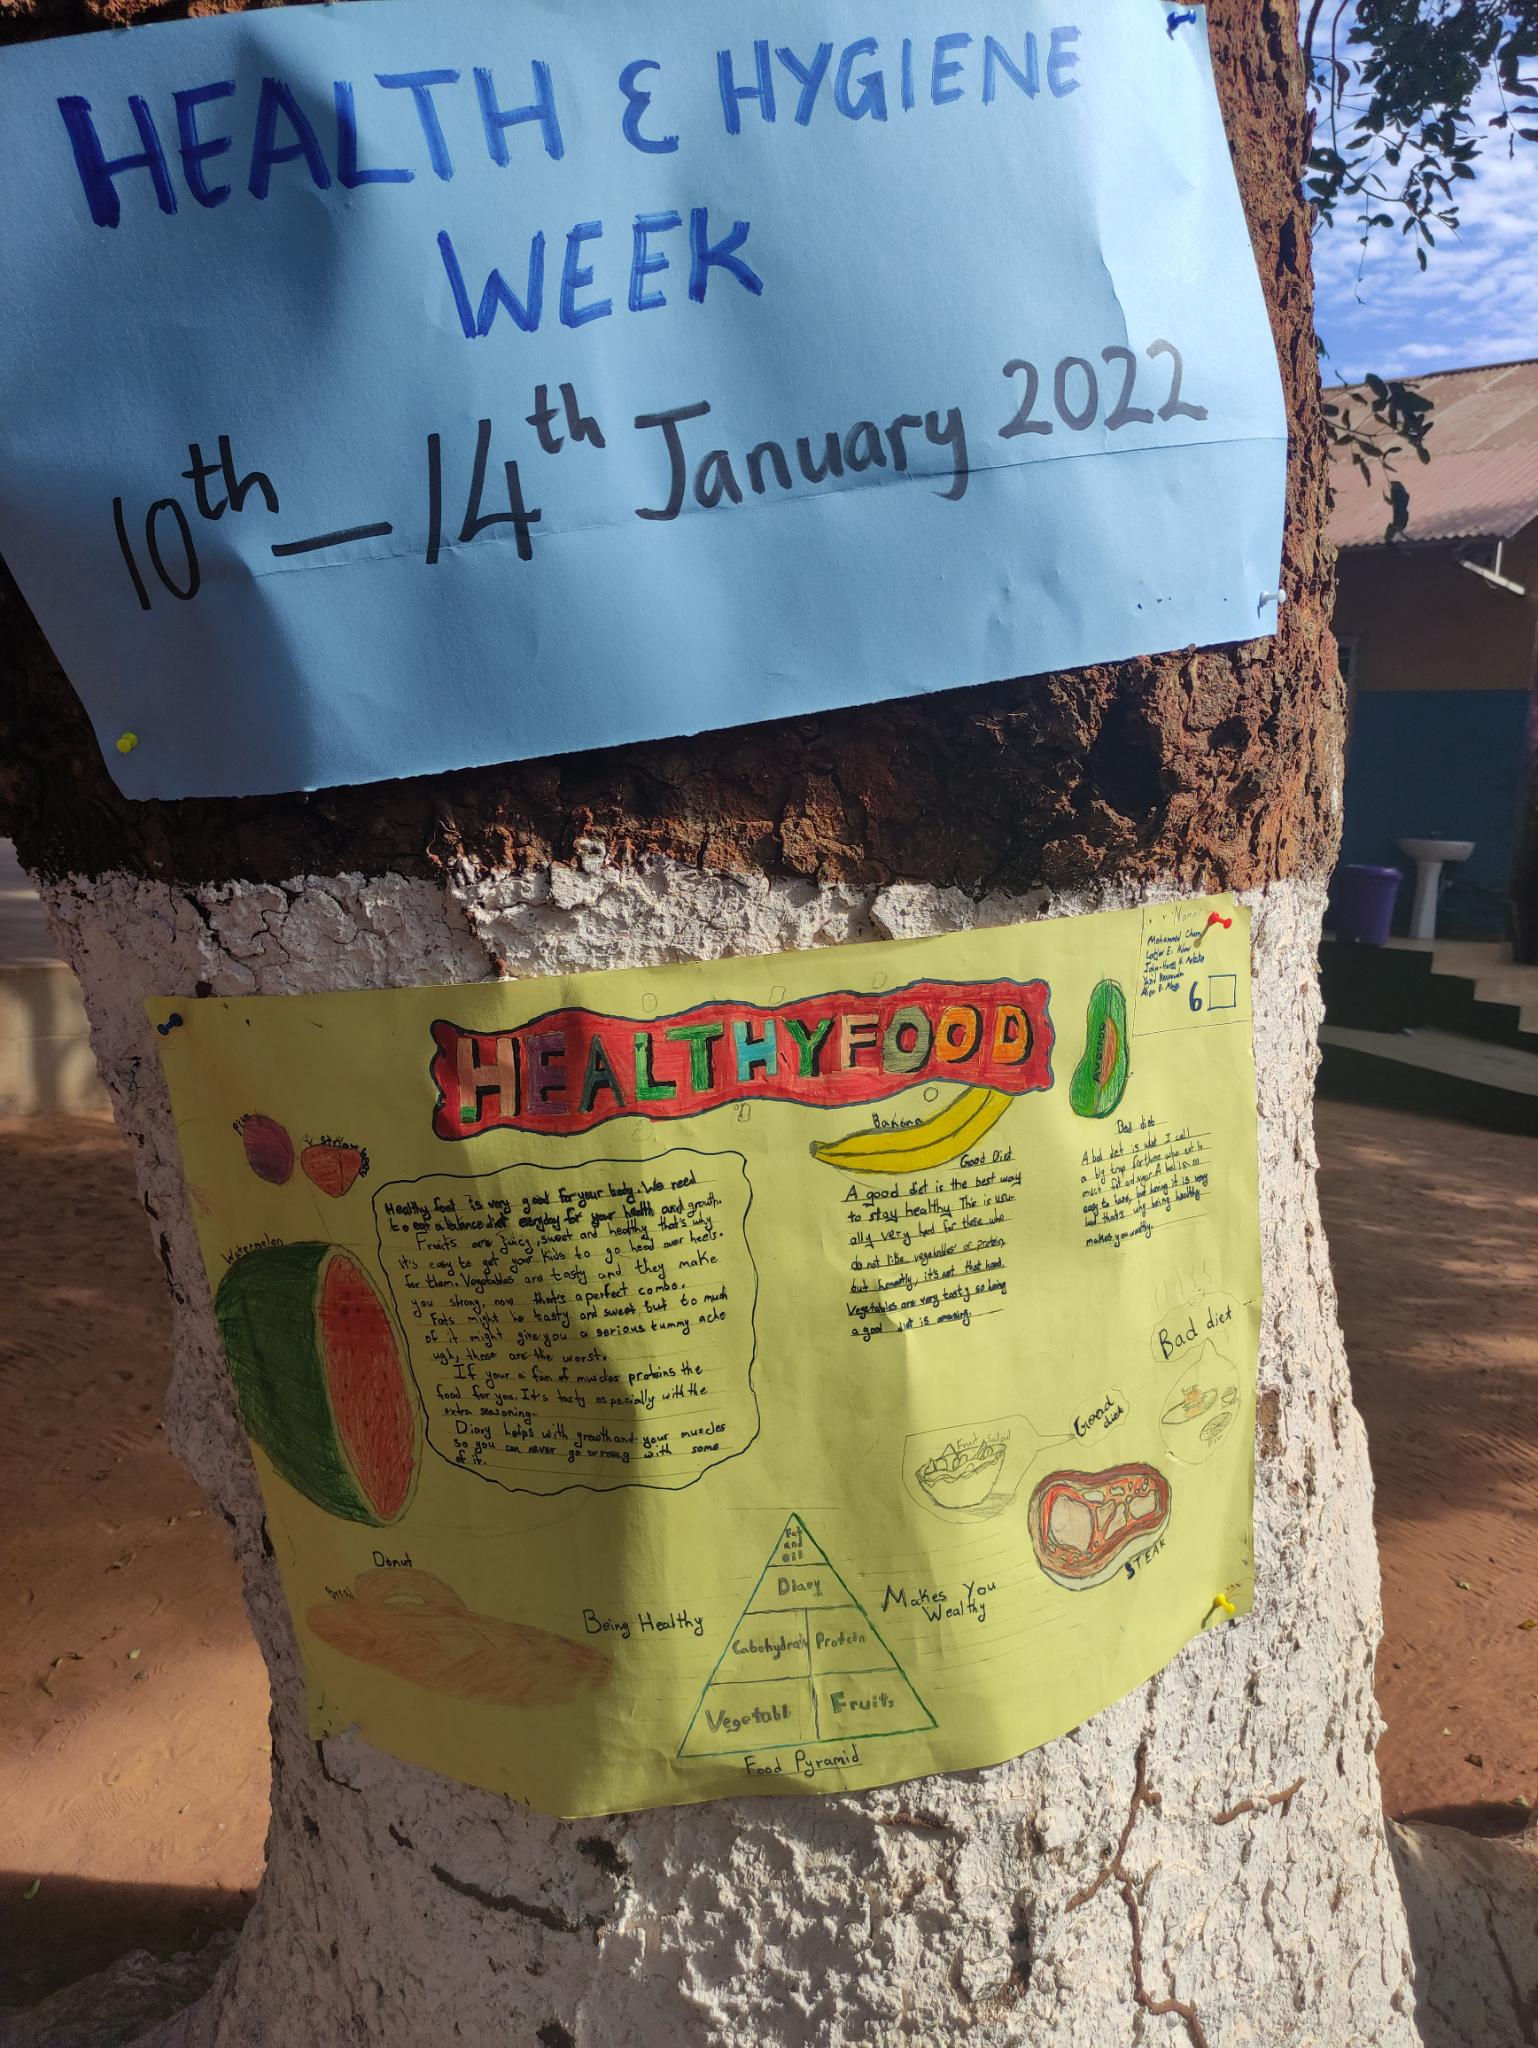 HEALTH & HYGIENE
WEEK
10th - 14th January 2022
HEALTHYFOOD
Name
Mohammed Cham
6
Avocado
Plum
Banana
Watermelon
Healthy food is very good for your body. We need
to eat a balance diet everyday for your health and growth.
Fruits are juicy, sweet and healthy that's why
it's easy to get your kids to go head over heels.
for them. Vegetables are tasty and they make
you strong, now that's a perfect combo.
Fats might be tasty and sweet, but to much
of it might give you a serious tummy ache
ugh, those are the worst.
If your a fan of muscles proteins the
food for you. It's tasty especially with the
extra seasoning.
Diary helps with growth and your muscles
so you can never go wrong with some
of it.
Good Diet
A good diet is the best way
to stay healthy. This is usu-
ally very hard for those who
do not like vegetables or protein
but honestly, it's not that hard.
Vegetables are very tasty so being
a good diet is amazing.
Bad diet
A bad diet is what I call
a big trap for those who eat to
much fat and sugar. A bad is
easy to have, but having it is very
bad that's why being healthy
makes you wealthy.
Bad diet
Good
diet
Fruit Salad
STEAK
Donut
Bread
Being Healthy
Makes You
Wealthy
Fat
and
oil
Diary
Cabohydrate
Protein
Vegetabl
Fruits
Food Pyramid